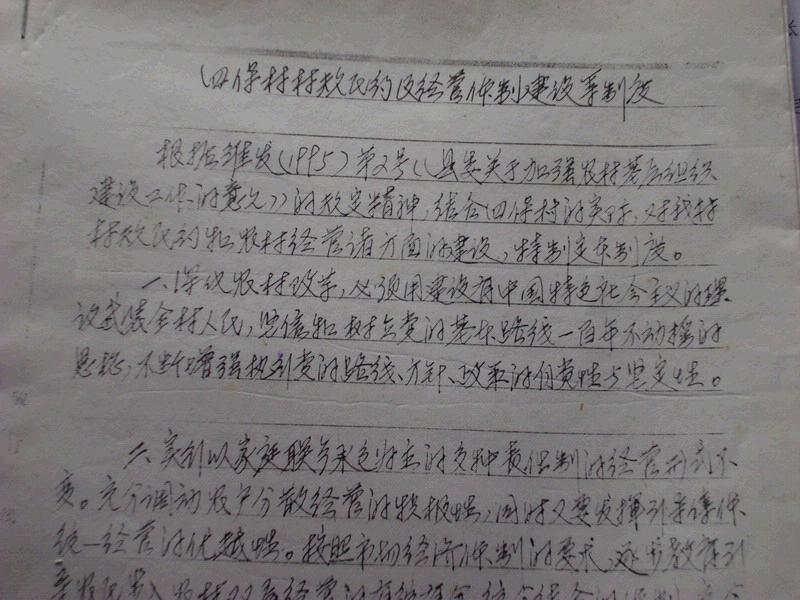 四保村村规民约及经营体制建设等制度
根据维发(1995)第2号《县委关于加强农村基层组织
建设工作的意见》的规定精神,结合四保村的实际,对我村
村规民约和农村经营诸方面的建设,特制定本制度。
一、深化农村改革,必须用建设有中国特色社会主义的理
论武装全村人民,坚信和树立党的基本路线一百年不动摇的
思想,不断增强执行党的路线、方针、政策的自觉性与坚定性。
二、实行以家庭联产承包为主的责任制的经营形式不
变。充分调动农户分散经营的积极性,同时又要发挥引导集体
统一经营的优越性。按照市场经济体制的要求,逐步教育引
农村双层经营的